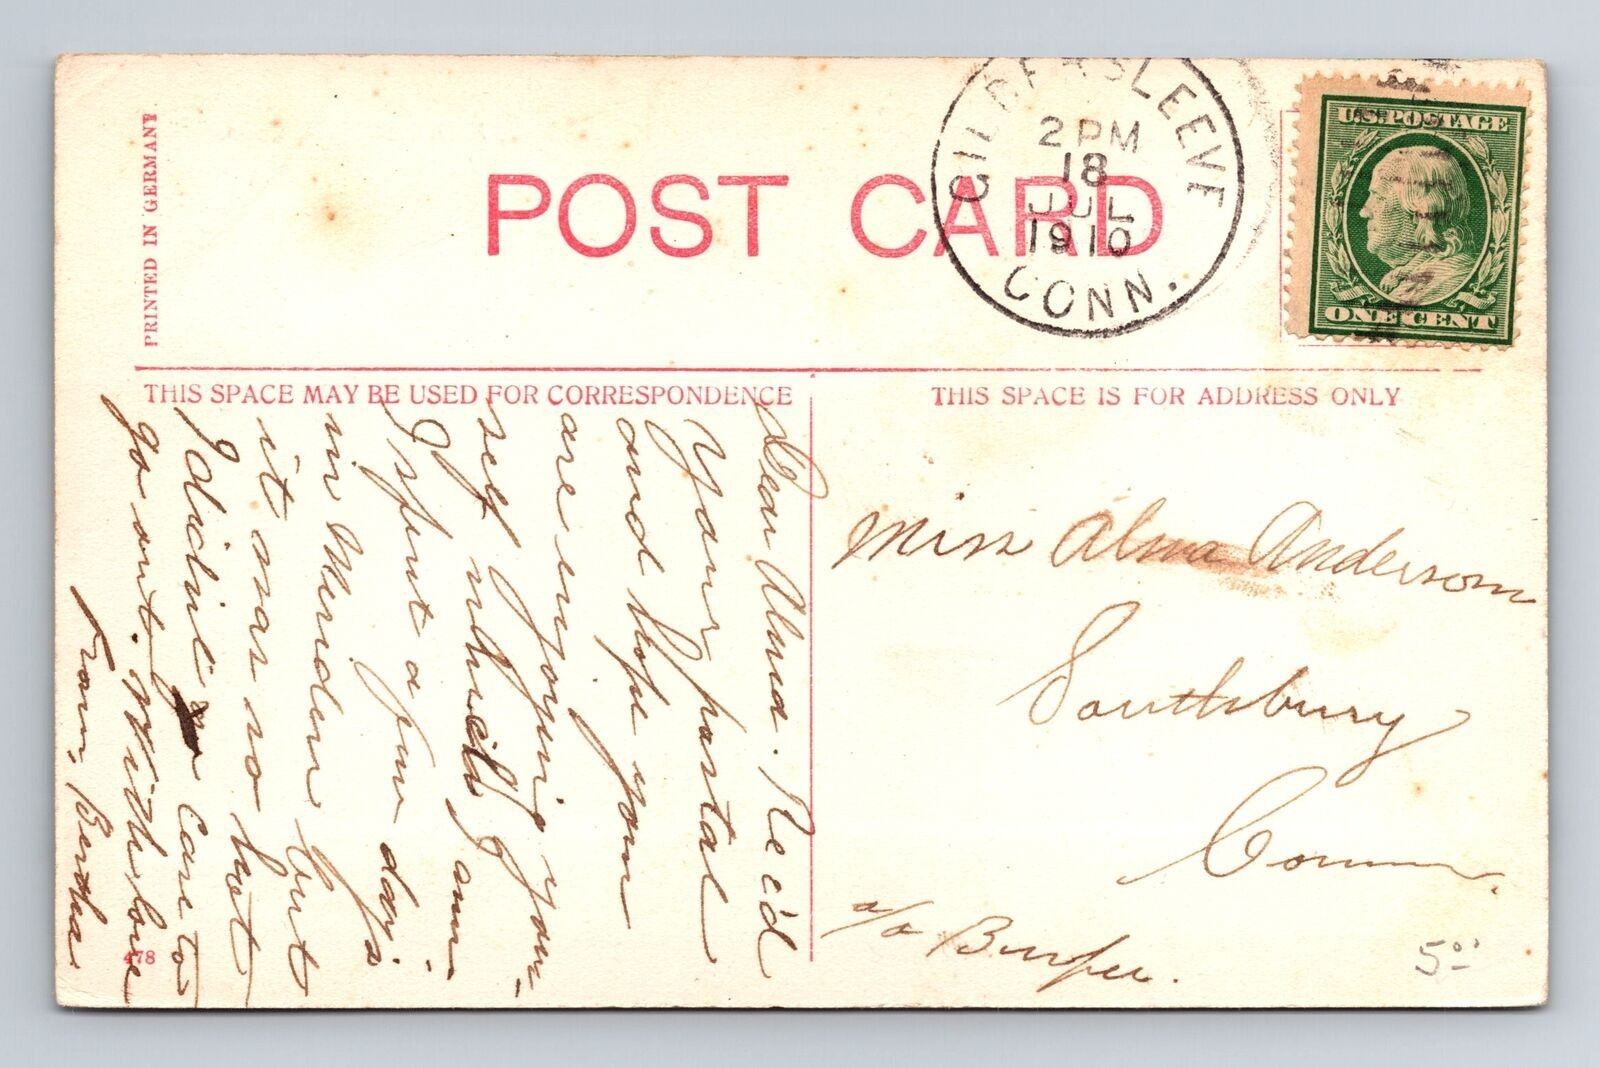 PRINTED IN GERMANY
POST CARD
GILDERSLEEVE
2 PM
18
JUL
1910
CONN.
U.S. POSTAGE
ONE CENT
THIS SPACE MAY BE USED FOR CORRESPONDENCE
THIS SPACE IS FOR ADDRESS ONLY
Dear Alma. Rec'd
Your postal
and hope you
are injoying your-
self which I am.
I spent a few days
in Meriden but
it was so hot
I didn't care to
go out. With love
From, Bertha.
Miss Alma Anderson
Southbury
Conn.
c/o Burpee.
478
5⁰⁰